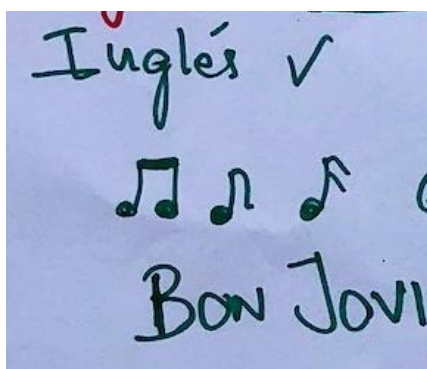 Inglés ✓
BON JOVI